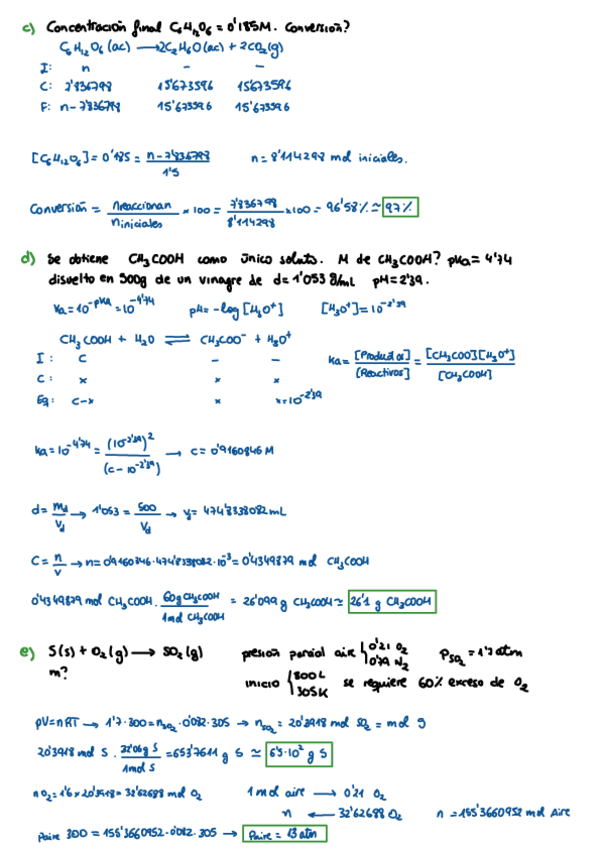 c) Concentración final C₆H₁₂O₆ = 0'185M. Conversión?
C₆H₁₂O₆ (ac) → 2C₂H₆O (ac) + 2CO₂(g)
I: n - -
C: 7'836798 15'673596 15'673596
F: n-7'836798 15'673596 15'673596
[C₆H₁₂O₆] = 0'185 = n-7'836798 / 1'5 n = 8'114298 mol iniciales.
Conversión = nreaccionan / niniciales × 100 = 7'836798 / 8'114298 × 100 = 96'58% ≃ 97%
d) Se obtiene CH₃COOH como único soluto. M de CH₃COOH? pKa = 4'74
disuelto en 500g de un vinagre de d = 1'053 g/mL pH = 2'39.
Ka = 10^-pKa = 10^-4'74 pH = -log [H₃O⁺] [H₃O⁺] = 10^-2'39
CH₃COOH + H₂O ⇌ CH₃COO⁻ + H₃O⁺
I: C - -
C: x x x
Eq: C-x x x = 10^-2'39
Ka = [Productos] / [Reactivos] = [CH₃COO][H₃O⁺] / [CH₃COOH]
Ka = 10^-4'74 = (10^-2'39)² / (c - 10^-2'39) → C = 0'9160846 M
d = md / Vd → 1'053 = 500 / Vd → V = 474'8338082 mL
C = n / V → n = 0'9160846 · 474'8338082 · 10⁻³ = 0'4349879 mol CH₃COOH
0'4349879 mol CH₃COOH · 60g CH₃COOH / 1mol CH₃COOH = 26'099 g CH₃COOH ≃ 26'1 g CH₃COOH
e) S(s) + O₂(g) → SO₂(g) presión parcial aire { 0'21 O₂ 0'79 N₂ P SO₂ = 1'7 atm
m? inicio { 300L 305K se requiere 60% exceso de O₂
pV = nRT → 1'7 · 300 = nSO₂ · 0'082 · 305 → nSO₂ = 20'3918 mol SO₂ = mol S
20'3918 mol S · 32'06g S / 1mol S = 653'7611 g S ≃ 6'5·10² g S
nO₂ = 1'6 × 20'3918 = 32'62688 mol O₂ 1 mol aire → 0'21 O₂
n ← 32'62688 O₂ n = 155'3660952 mol Aire
Paire 300 = 155'3660952 · 0'082 · 305 → Paire = 13 atm